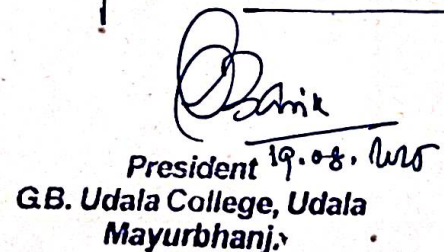 President 19.08.2025
G.B. Udala College, Udala
Mayurbhanj.